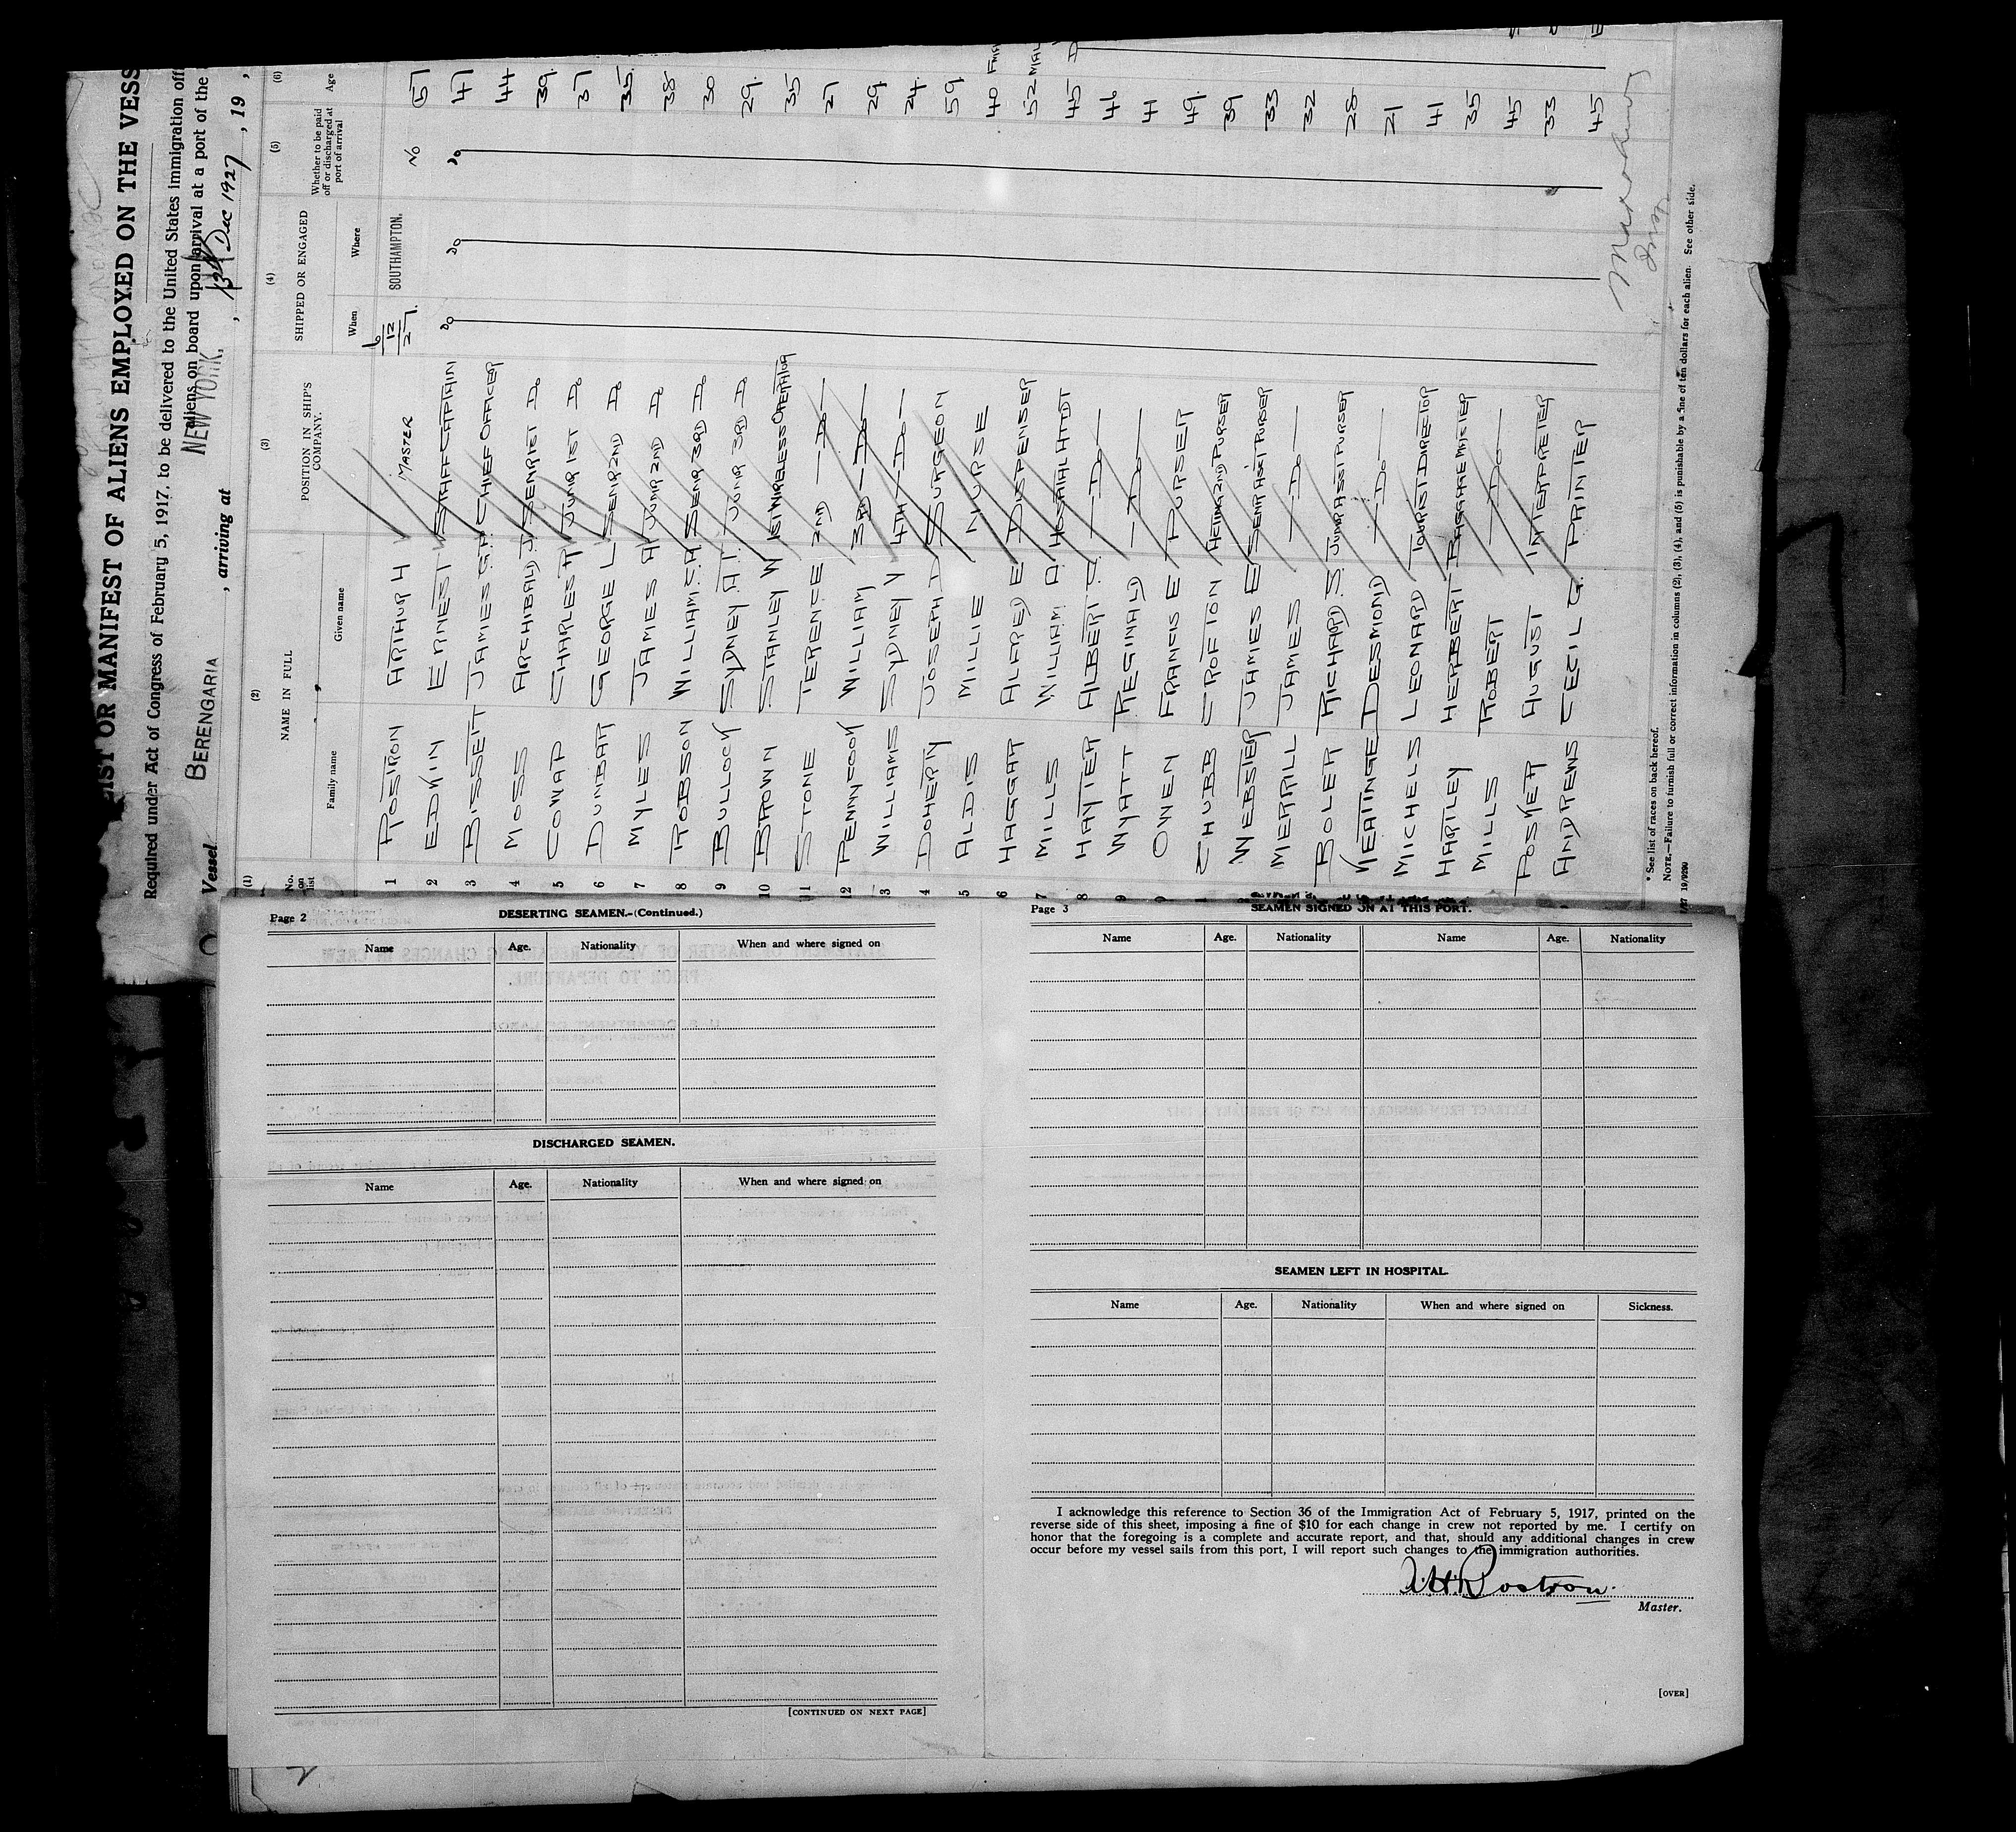 LIST OR MANIFEST OF ALIENS EMPLOYED ON THE VESS
Required under Act of Congress of February 5, 1917, to be delivered to the United States immigration off
aliens on board upon arrival at a port of the
Vessel BERENGARIA , arriving at NEW YORK. , 13th Dec 1927 , 19 ,
(1) (2) (3) (4) (5) (6)
No. on list NAME IN FULL POSITION IN SHIP'S COMPANY. SHIPPED OR ENGAGED Whether to be paid off or discharged at port of arrival Age
Family name Given name When Where
1 ROSTRON ARTHUR H MASTER 6/12/27. SOUTHAMPTON. No 57
2 EDKIN ERNEST STAFF CAPTAIN Do Do Do 47
3 BISSETT JAMES G.P. CHIEF OFFICER 44
4 MOSS ARCHIBALD J. SENR 1ST Do 39
5 COWAP CHARLES R JUNR 1ST Do 37
6 DUNBAR GEORGE L SENR 2ND Do 35
7 MYLES JAMES A JUNR 2ND Do 38
8 ROBSON WILLIAM SENR 3RD Do 30
9 BULLOCK SYDNEY A. JUNR 3RD D 29
10 BROWN STANLEY W 1ST WIRELESS OPERATOR 35
11 STONE TERENCE 2ND — Do — 27
12 PENNYCOOK WILLIAM 3RD — Do — 29
13 WILLIAMS SYDNEY V 4TH — Do — 24
4 DOHERTY JOSEPH D SURGEON 59
5 ALDIS MILLIE NURSE 40
6 HAGGAR ALFRED E DISPENSER 52
7 MILLS WILLIAM A. HOSPITAL ATTDT 45
8 HAYTER ALBERT C. — Do — 46
9 WYATT REGINALD — Do — 41
0 OWEN FRANCIS E PURSER 49
1 CHUBB CROFTON 2ND PURSER 39
WEBSTER JAMES E SENR ASST PURSER 33
MERRILL JAMES — Do — 32
BOLER RICHARD. S. JUNR ASST PURSER 28
KEATINGE DESMOND — Do — 21
MICHELS LEONARD TOURIST DIRECTOR 41
HARTLEY HERBERT BAGGAGE MASTER 35
MILLS ROBERT — Do — 45
POSKER AUGUST INTERPRETER 33
ANDREWS CECIL G. PRINTER 45
* See list of races on back hereof.
NOTE.—Failure to furnish full or correct information in columns (2), (3), (4), and (5) is punishable by a fine of ten dollars for each alien. See other side.
Page 2 DESERTING SEAMEN.-(Continued.)
Name Age. Nationality When and where signed on
DISCHARGED SEAMEN.
Name Age. Nationality When and where signed on
[CONTINUED ON NEXT PAGE]
Page 3 SEAMEN SIGNED ON AT THIS PORT.
Name Age. Nationality Name Age. Nationality
SEAMEN LEFT IN HOSPITAL.
Name Age. Nationality When and where signed on Sickness.
I acknowledge this reference to Section 36 of the Immigration Act of February 5, 1917, printed on the
reverse side of this sheet, imposing a fine of $10 for each change in crew not reported by me. I certify on
honor that the foregoing is a complete and accurate report, and that, should any additional changes in crew
occur before my vessel sails from this port, I will report such changes to the immigration authorities.
A.H. Rostron.
Master.
[OVER]